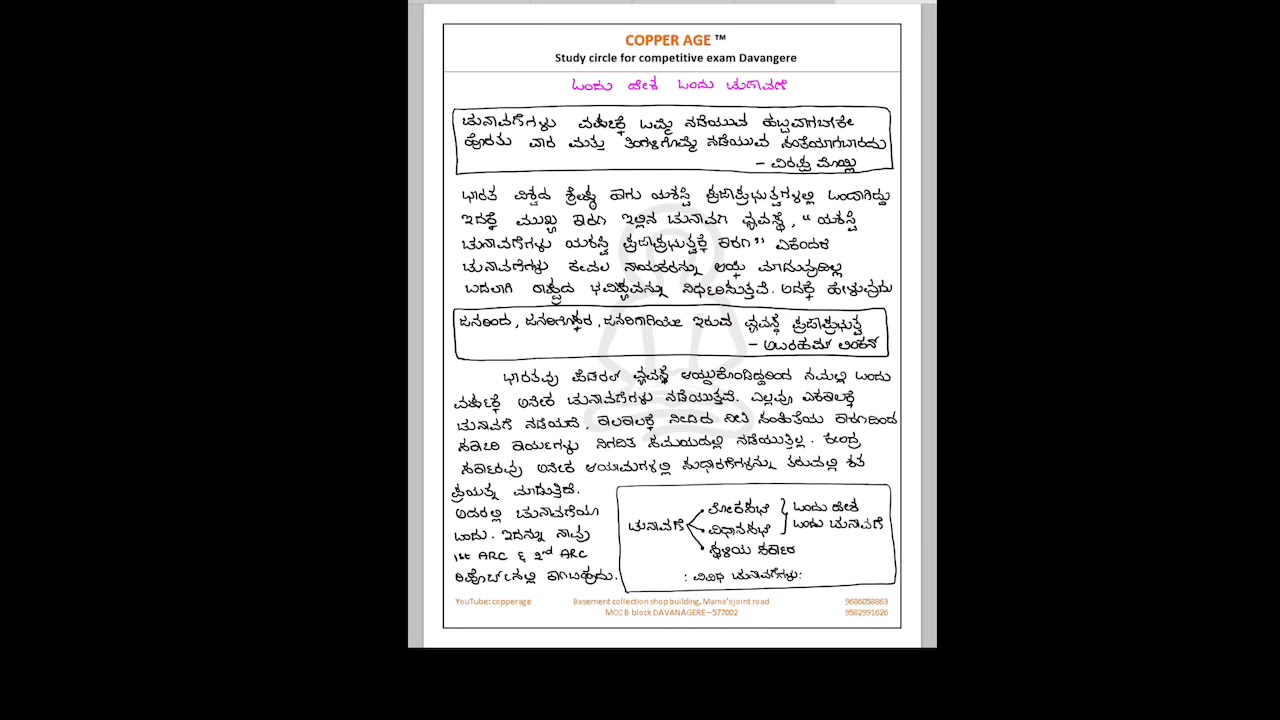 COPPER AGE ™
Study circle for competitive exam Davangere
ಒಂದು ದೇಶ ಒಂದು ಚುನಾವಣೆ
ಚುನಾವಣೆಗಳು ವರ್ಷಕ್ಕೆ ಒಮ್ಮೆ ನಡೆಯುವ ಹಬ್ಬವಾಗಬೇಕೇ
ಹೊರತು ವಾರ ಮತ್ತು ತಿಂಗಳಿಗೊಮ್ಮೆ ನಡೆಯುವ ಸಂತೆಯಾಗಬಾರದು
- ವೀರಪ್ಪ ಮೊಯ್ಲಿ
ಭಾರತ ವಿಶ್ವದ ಶ್ರೇಷ್ಠ ಹಾಗು ಯಶಸ್ವಿ ಪ್ರಜಾಪ್ರಭುತ್ವಗಳಲ್ಲಿ ಒಂದಾಗಿದ್ದು
ಇದಕ್ಕೆ ಮುಖ್ಯ ಕಾರಣ ಇಲ್ಲಿನ ಚುನಾವಣ ವ್ಯವಸ್ಥೆ, “ ಯಶಸ್ವಿ
ಚುನಾವಣೆಗಳು ಯಶಸ್ವಿ ಪ್ರಜಾಪ್ರಭುತ್ವಕ್ಕೆ ಕಾರಣ ” ಏಕೆಂದರೆ
ಚುನಾವಣೆಗಳು ಕೇವಲ ನಾಯಕರನ್ನು ಆಯ್ಕೆ ಮಾಡುವುದಿಲ್ಲ
ಬದಲಾಗಿ ರಾಷ್ಟ್ರದ ಭವಿಷ್ಯವನ್ನು ನಿರ್ಧರಿಸುತ್ತವೆ. ಅದಕ್ಕೆ ಹೇಳುವುದು
ಜನರಿಂದ, ಜನರಿಗೋಸ್ಕರ, ಜನರಿಗಾಗಿಯೇ ಇರುವ ವ್ಯವಸ್ಥೆ ಪ್ರಜಾಪ್ರಭುತ್ವ
- ಅಬ್ರಹಮ್ ಲಿಂಕನ್
ಭಾರತವು ಫೆಡರಲ್ ವ್ಯವಸ್ಥೆ ಆಯ್ದುಕೊಂಡಿದ್ದರಿಂದ ನಮ್ಮಲ್ಲಿ ಒಂದು
ವರ್ಷಕ್ಕೆ ಅನೇಕ ಚುನಾವಣೆಗಳು ನಡೆಯುತ್ತವೆ. ಎಲ್ಲವೂ ಏಕಕಾಲಕ್ಕೆ
ಚುನಾವಣೆ ನಡೆಯದೆ, ಕಾಲಕಾಲಕ್ಕೆ ನೀತಿ ಸಂಹಿತೆಯ ಕಾರಣದಿಂದ
ಸರ್ಕಾರಿ ಕಾರ್ಯಗಳು ನಿಗದಿತ ಸಮಯದಲ್ಲಿ ನಡೆಯುತ್ತಿಲ್ಲ. ಕೇಂದ್ರ
ಸರ್ಕಾರವು ಅನೇಕ ಆಯಾಮಗಳಲ್ಲಿ ಸುಧಾರಣೆಗಳನ್ನು ತರುವಲ್ಲಿ ಶತ
ಪ್ರಯತ್ನ ಮಾಡುತ್ತಿದೆ.
ಅದರಲ್ಲಿ ಚುನಾವಣೆಯೂ
ಒಂದು. ಇದನ್ನು ನಾವು
1st ARC & 2nd ARC
ರಿಪೋರ್ಟ್‌ನಲ್ಲಿ ಕಾಣಬಹುದು.
ಚುನಾವಣೆ
ಲೋಕಸಭೆ
ವಿಧಾನಸಭೆ
ಸ್ಥಳೀಯ ಸರ್ಕಾರ
ಒಂದು ದೇಶ
ಒಂದು ಚುನಾವಣೆ
: ವಿವಿಧ ಚುನಾವಣೆಗಳು:
YouTube: copperage Basement collection shop building, Mama's joint road 9686058863
MCC B block DAVANAGERE–577002 9582991626